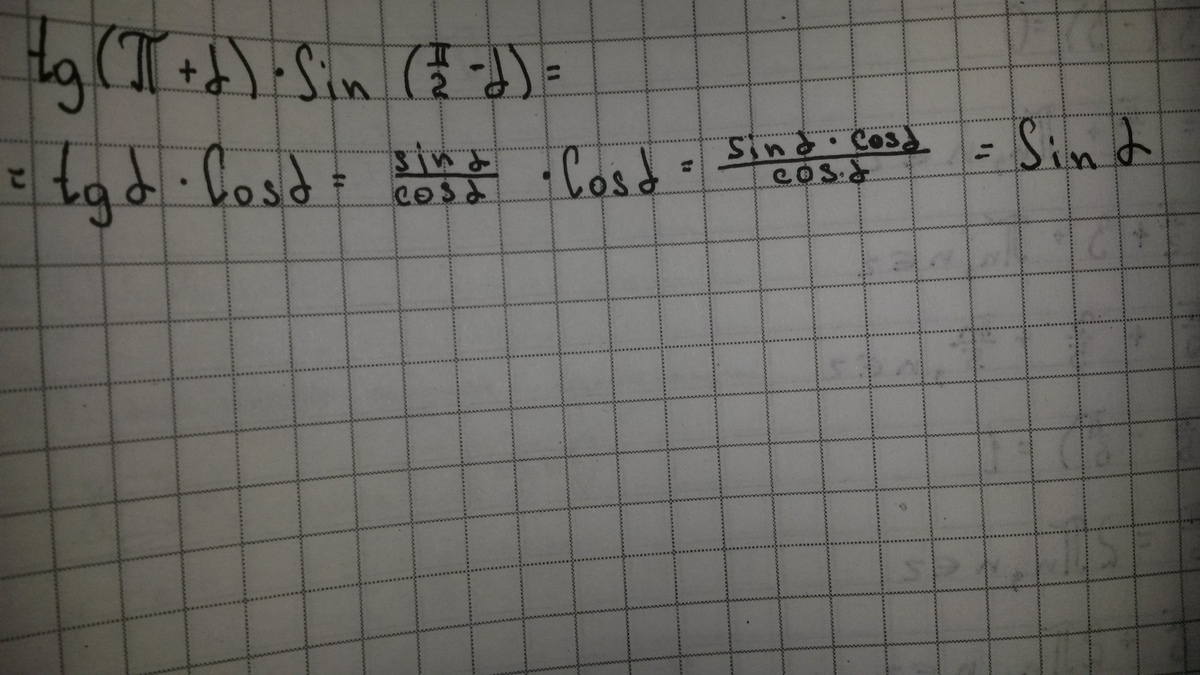 tg (π + α) · Sin (π/2 - α) =
= tg α · Cos α = sin α / cos α · Cos α = sin α · cos α / cos · α = Sin α